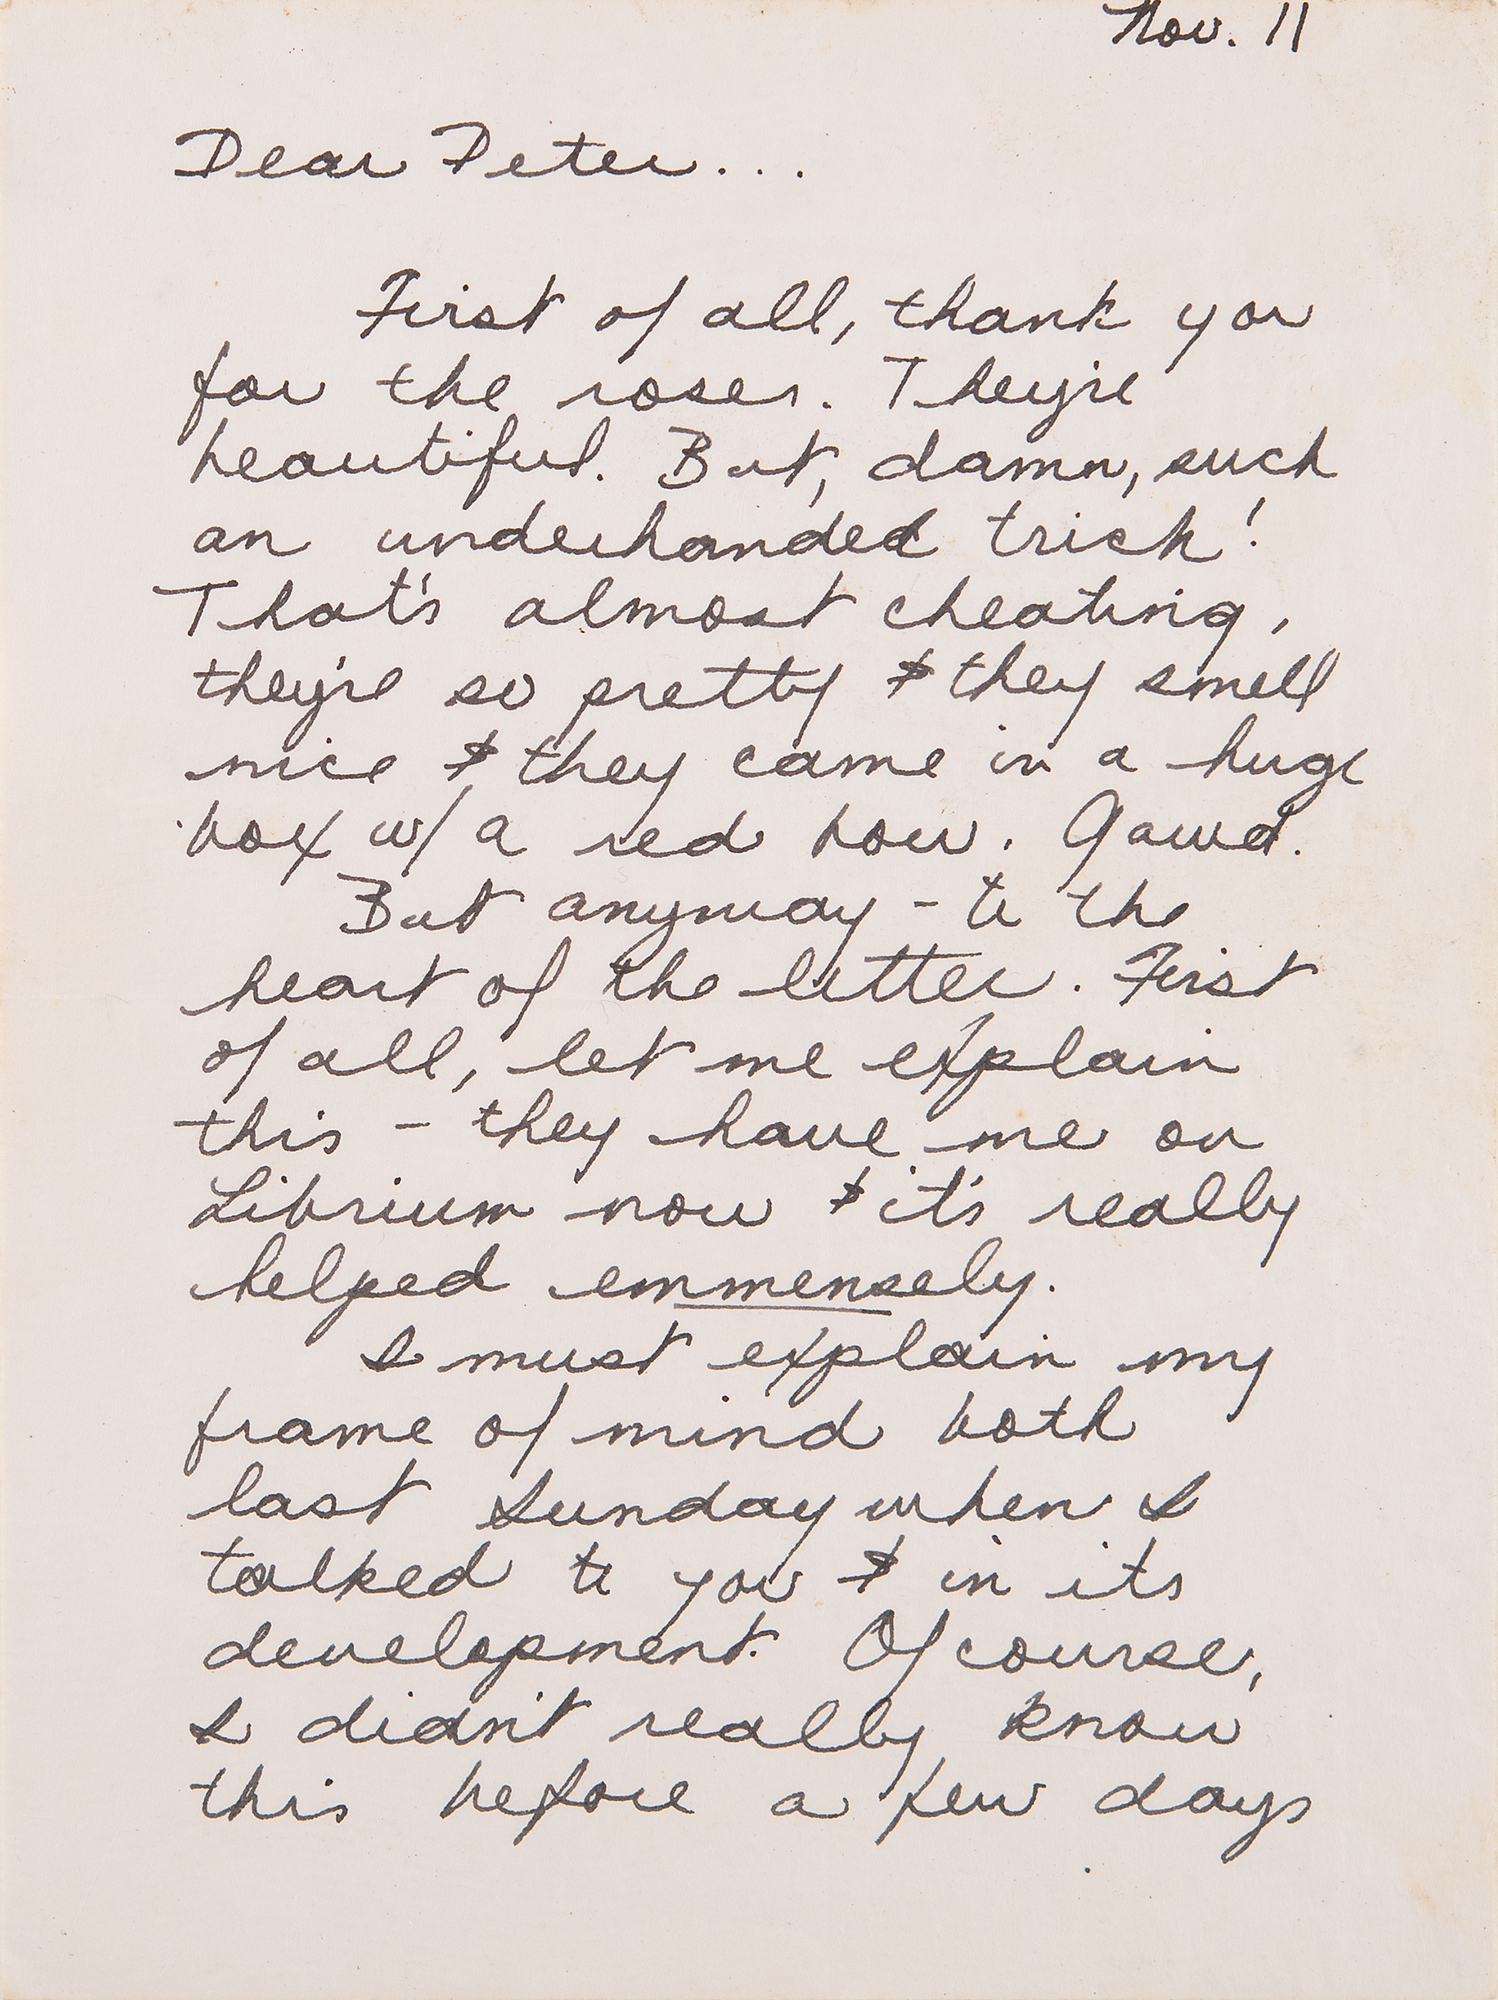 Nov. 11
Dear Peter...
First of all, thank you
for the roses. They're
beautiful. But, damn, such
an underhanded trick!
That's almost cheating,
they're so pretty & they smell
nice & they came in a huge
box w/ a red bow. Gawd.
But anyway - to the
heart of the letter. First
of all, let me explain
this - they have me on
Librium now & it's really
helped emmensely.
I must explain my
frame of mind both
last Sunday when I
talked to you & in its
development. Of course,
I didn't really know
this before a few days